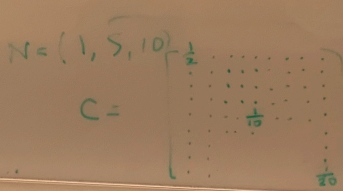 N = (1, 5, 10)
C = [ 1/2
1/10
1/20 ]